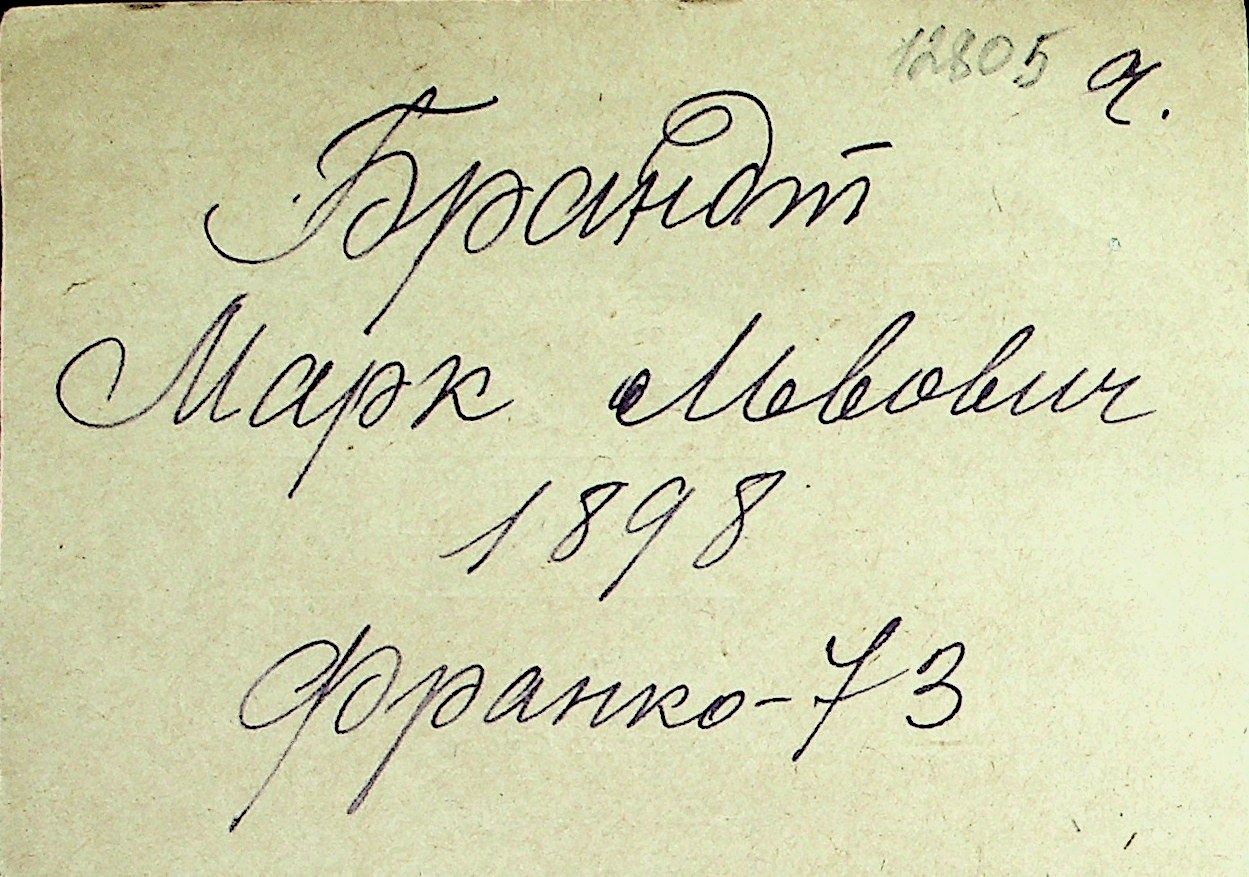 12805 ч.
Брандт
Марк Львович
1898
Франко-73